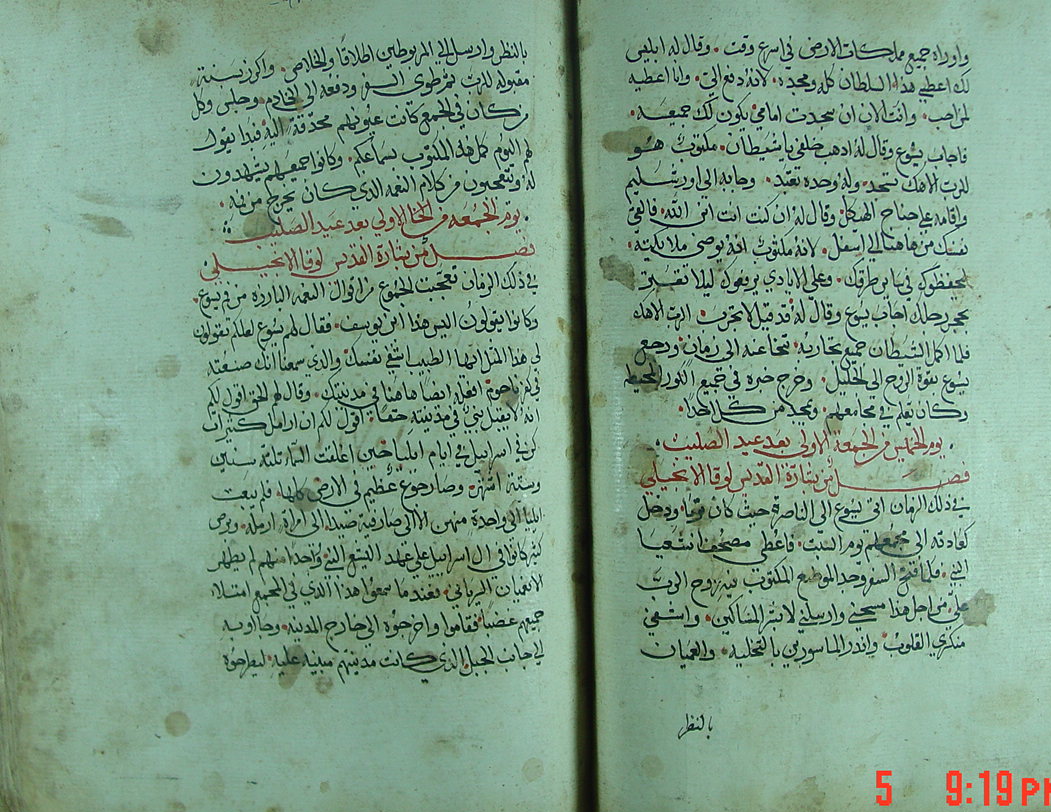 واوراه جميع مملكات الارض في اسرع وقت. وقال له ابليس
لك اعطي هذا السلطان كله ومجده. لانه دفع الي. وانا اعطيه
لمن احب. وانت الان ان سجدت امامي يكون لك جميعه.
فاجاب يسوع وقال له اذهب خلفي ياشيطان. مكتوب هو
للرب الاهك تسجد. وله وحده تعبد. وجابه الي اورشليم
واقامه علي جناح الهيكل. وقال له ان كنت انت ابن الله. فالقي
نفسك من هاهنا الي اسفل. لانه مكتوب انه يوصي ملايكته.
ليحفظوك في ساير طرقك. وعلي الايادي يرفعوك ليلا تعثر
بحجر رجلك اجاب يسوع وقال له قد قيل لا تجرب. الرب الاهك
فلما اكمل الشيطان جميع تجاربه. تنحا عنه الي زمان. ورجع
يسوع بقوة الروح الي الجليل. وخرج خبره في جميع الكور المحيطه
وكان يعلم في مجامعهم. ويمجد من كل احدا.
يوم الخميس من الجمعة الاولي بعد عيد الصليب.
فصل من بشارة القديس لوقا الانجيلي
في ذلك الزمان اتي يسوع الي الناصرة حيث كان تربا. ودخل
كعادته الي مجمعهم يوم السبت. فاعطي مصحف اشعيا
النبي. فلما فتح السفر وجد الموضع المكتوب فيه روح الرب
علي من اجل هذا مسحني وارسلني لابشر المساكين. واشفي
منكسري القلوب. وانذر الماسورين بالتخليه. والعميان
بالنظر
بالنظر وارسل الي المربوطين اطلاقا والخلاص. واكرز بسنة
مقبوله للرب ثم طوي السفر ودفعه الي الخادم. وجلس وكل
من كان في المجمع كانت عيونهم محدقة اليه. فبدا يقول
لهم اليوم كمل هذا المكتوب بسماعكم. وكانوا جميعهم يشهدون
له ويتعجبون من كلام النعمه الذي كان يخرج من فيه.
يوم الجمعه من الاولي بعد عيد الصليب
فصل من بشارة القديس لوقا الانجيلي
في ذلك الزمان تعجبت الجموع من اقوال النعمه البارزه من فم يسوع.
وكانوا يقولون اليس هذا ابن يوسف. فقال لهم يسوع لعلكم تقولون
لي هذا المثل ايها الطبيب اشفي نفسك. والذي سمعنا انك صنعته
في كفرناحوم. افعله ايضا هاهنا في مدينتك. وقال لهم الحق اقول لكم
انه لا يقبل نبي في مدينته حقا. اقول لكم ان ارامل كثيرات
كن في اسرايل في ايام ايليا حين اغلقت السما ثلثة سنين
وستة اشهر. وصار جوع عظيم في الارض كلها. فلم يبعث
ايليا الي واحدة منهن الا الي صارفية صيدا. الي امراة ارملة. وبرص
كثير كانوا في ال اسرايل علي عهد اليشع النبي. وواحدا منهم لم يطهر
الا نعمان السرياني. فعند ما سمعوا هذا الذي في المجمع امتلاء
جميعهم غضبا. فقاموا واخرجوه الي خارج المدينه. وجاوبه
الي جانب الجبل الذي كانت مدينتهم مبنيه عليه. ليطرحوه
5 9:19 PM